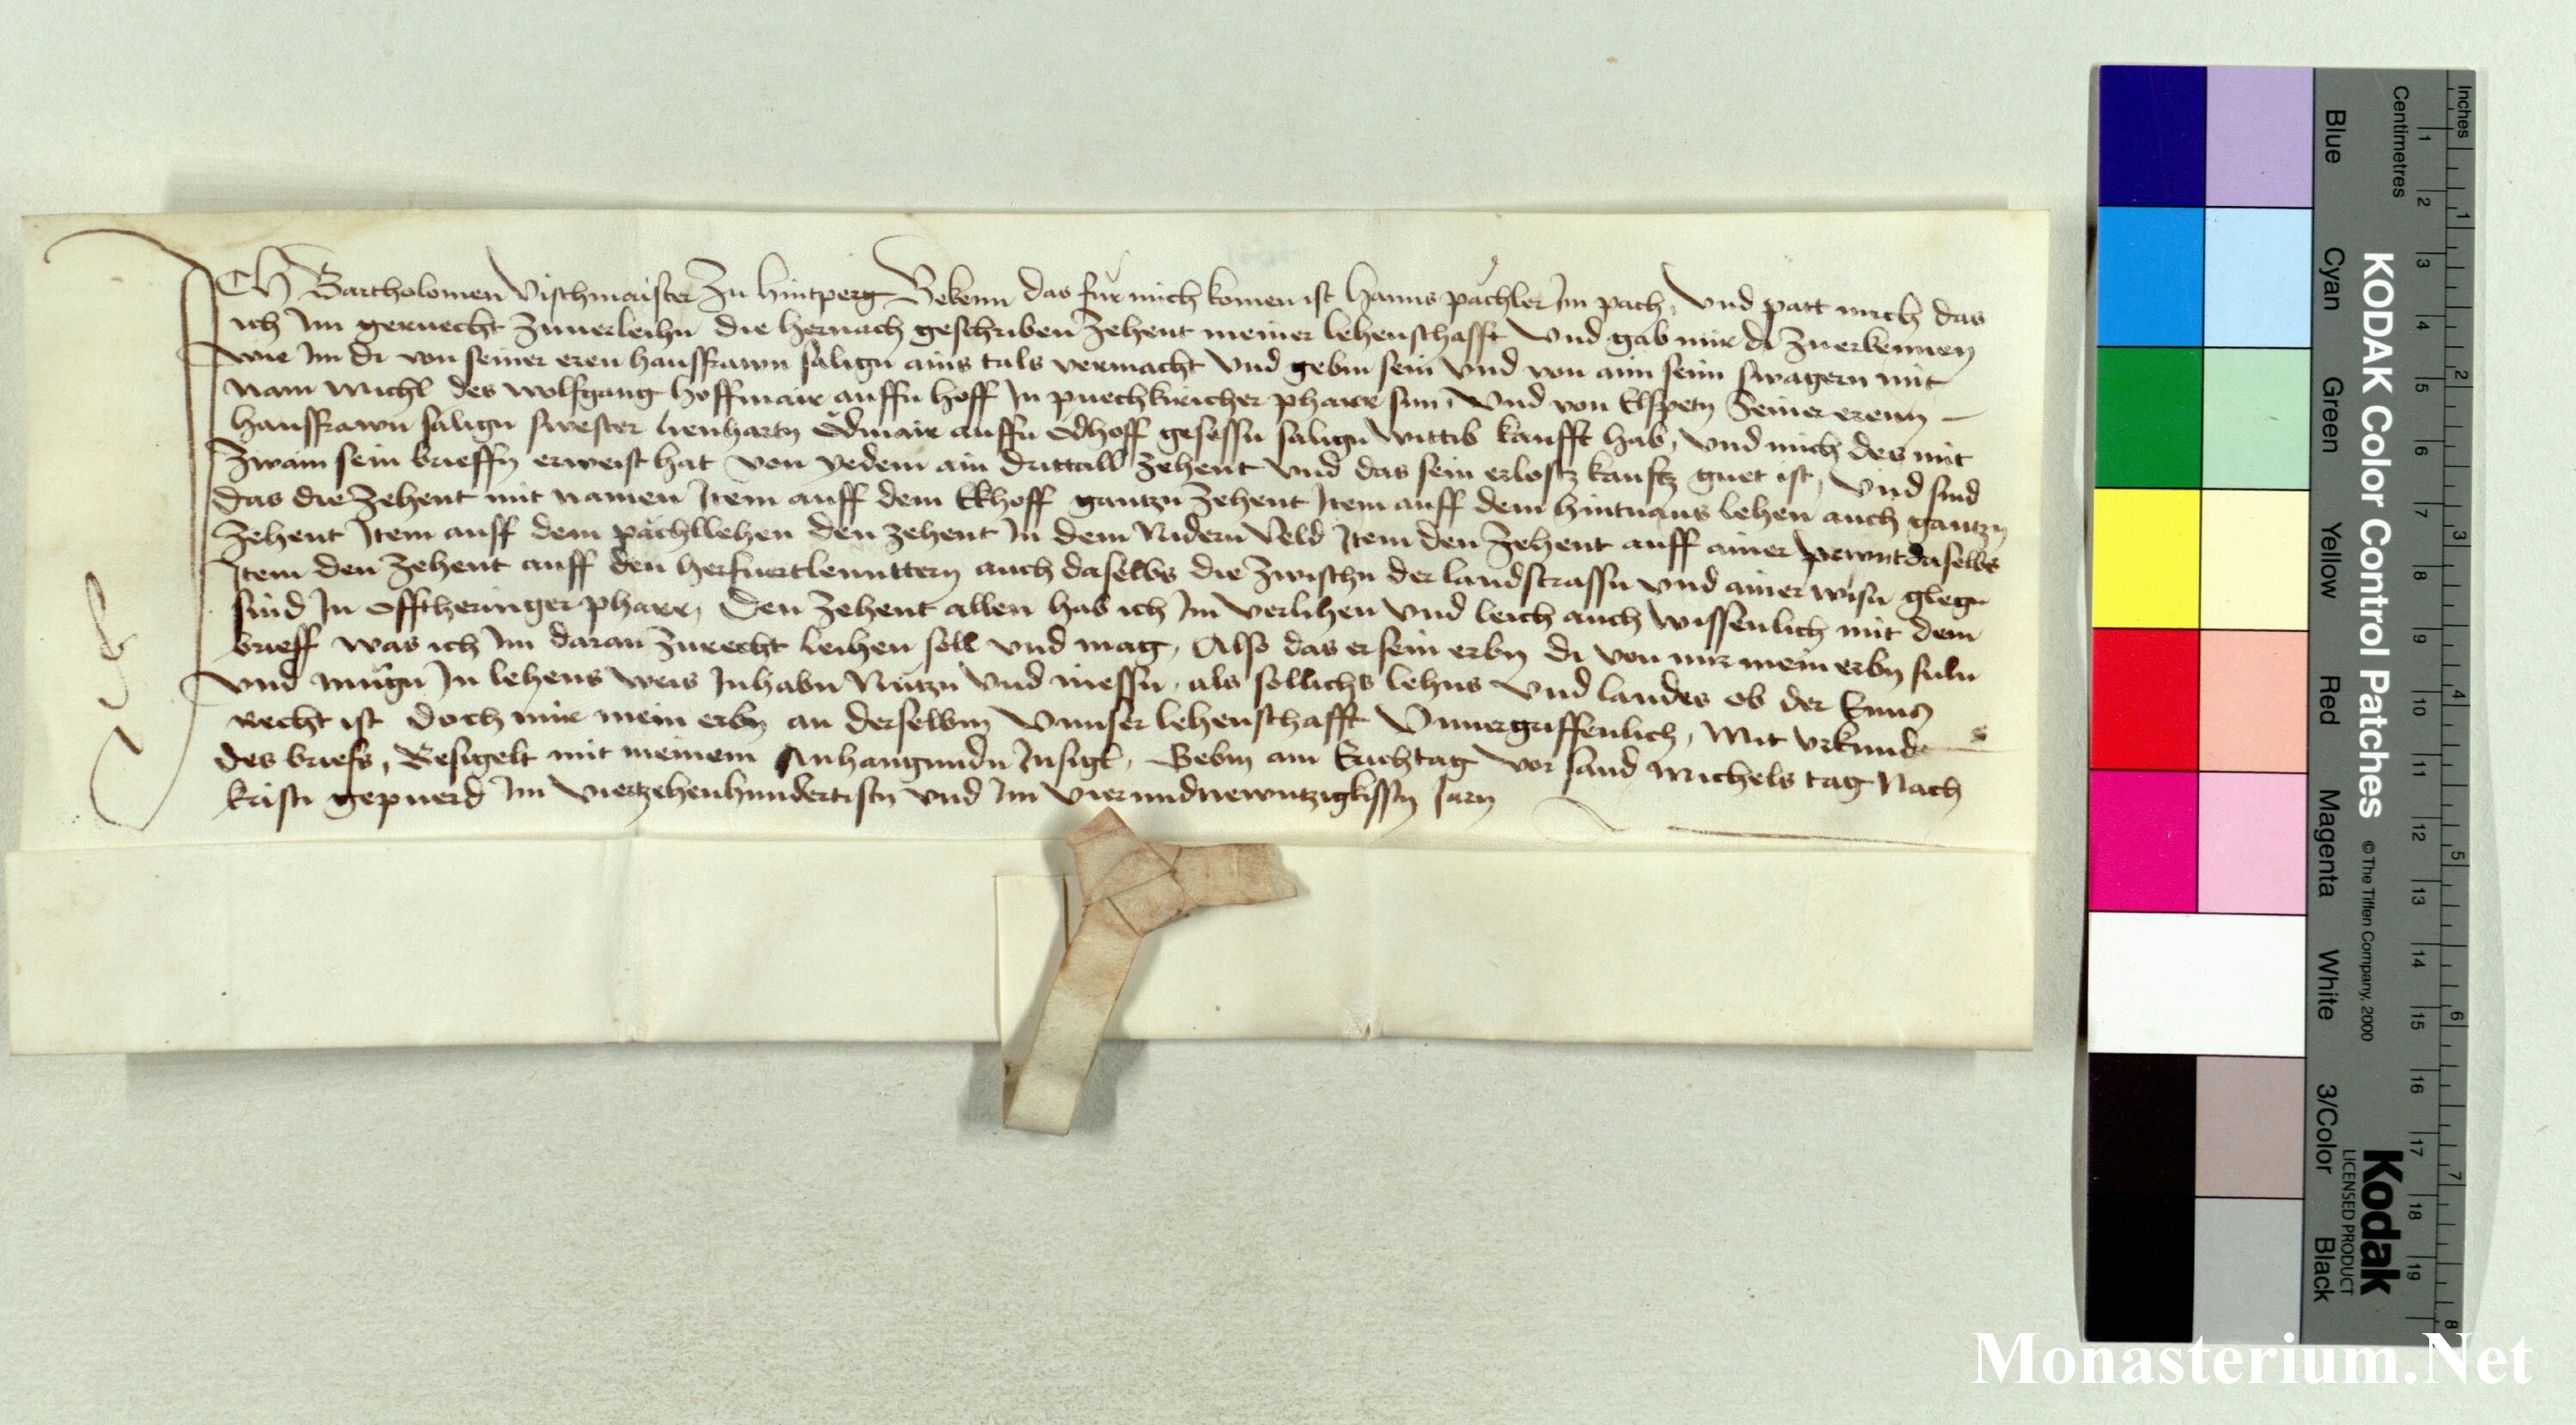 ICH Bartholomeu Vischmaister Zu hintperg Bekenn das für mich komen ist hanns pächler Im pach, Vnd patt mich das
ich Im geruecht Zuuerleihn die hernach geschriben Zehent meiner lehenschafft Vnd gab mir di Zuerkennen
wie Im di von seiner eren hausfrawn saligñ ains tails vermacht Vnd gebm sein Vnd von aim seim swagern mit
nam Michl des wolfgang hoffmair auffn hoff In puechkiricher pharr sun, Vnd von Elspetn Seiner erenn
hausfrawn saligñ swester lienhartn Ödmair auffn Ödhoff gesessn saligñ wittib kaufft hab, Vnd mich des mit
Zwain sein brieffn erweist hat von yedem ain drittall Zehent Vnd das sein erlostz kauftz guet ist, Vnd sind
das die Zehent mit namen Item auff dem Ekhoff gantzn Zehent Item auff dem hintnaus lehen auch gantzn
Zehent Item auff dem pächllehen den zehent In dem Nidern Veld Item den Zehent auff ainer pewnt daselbs
Item den Zehent auff den herfuertlenttern auch daselbs die Zwischn der landstrassn Vnd ainer wisn glegn
sind In Offtheringer pharr, Den Zehent allen hab ich Im verlihen Vnd leich auch wissenlich mit dem
brieff was ich Im daran Zurecht leihen soll Vnd mag, Also das er sein erbn di von mir mein erbn sulln
Vnd mügn In lehens weis Inhabn Nützn Vnd niessn, als sollichs lehns Vnd landes ob der Enns
recht ist doch mir mein erbn an derselbm Vnnser lehenschafft Vnuergriffenlich, Mit Vrkund
des briefs, Besigelt mit meinem Anhangundn Insigl, Gebm am Erichtag vor sand Michels tag Nach
kristi gepuerd Im Viertzehenhundertistn Vnd Im Vierundnewntzigkisstn Jarn
Inches
Centimetres
1 2 3 4 5 6 7 8 9 10 11 12 13 14 15 16 17 18 19
1 2 3 4 5 6 7 8
Blue Cyan Green Yellow Red Magenta White 3/Color Black
KODAK Color Control Patches
© The Tiffen Company, 2000
Kodak
LICENSED PRODUCT
Monasterium.Net